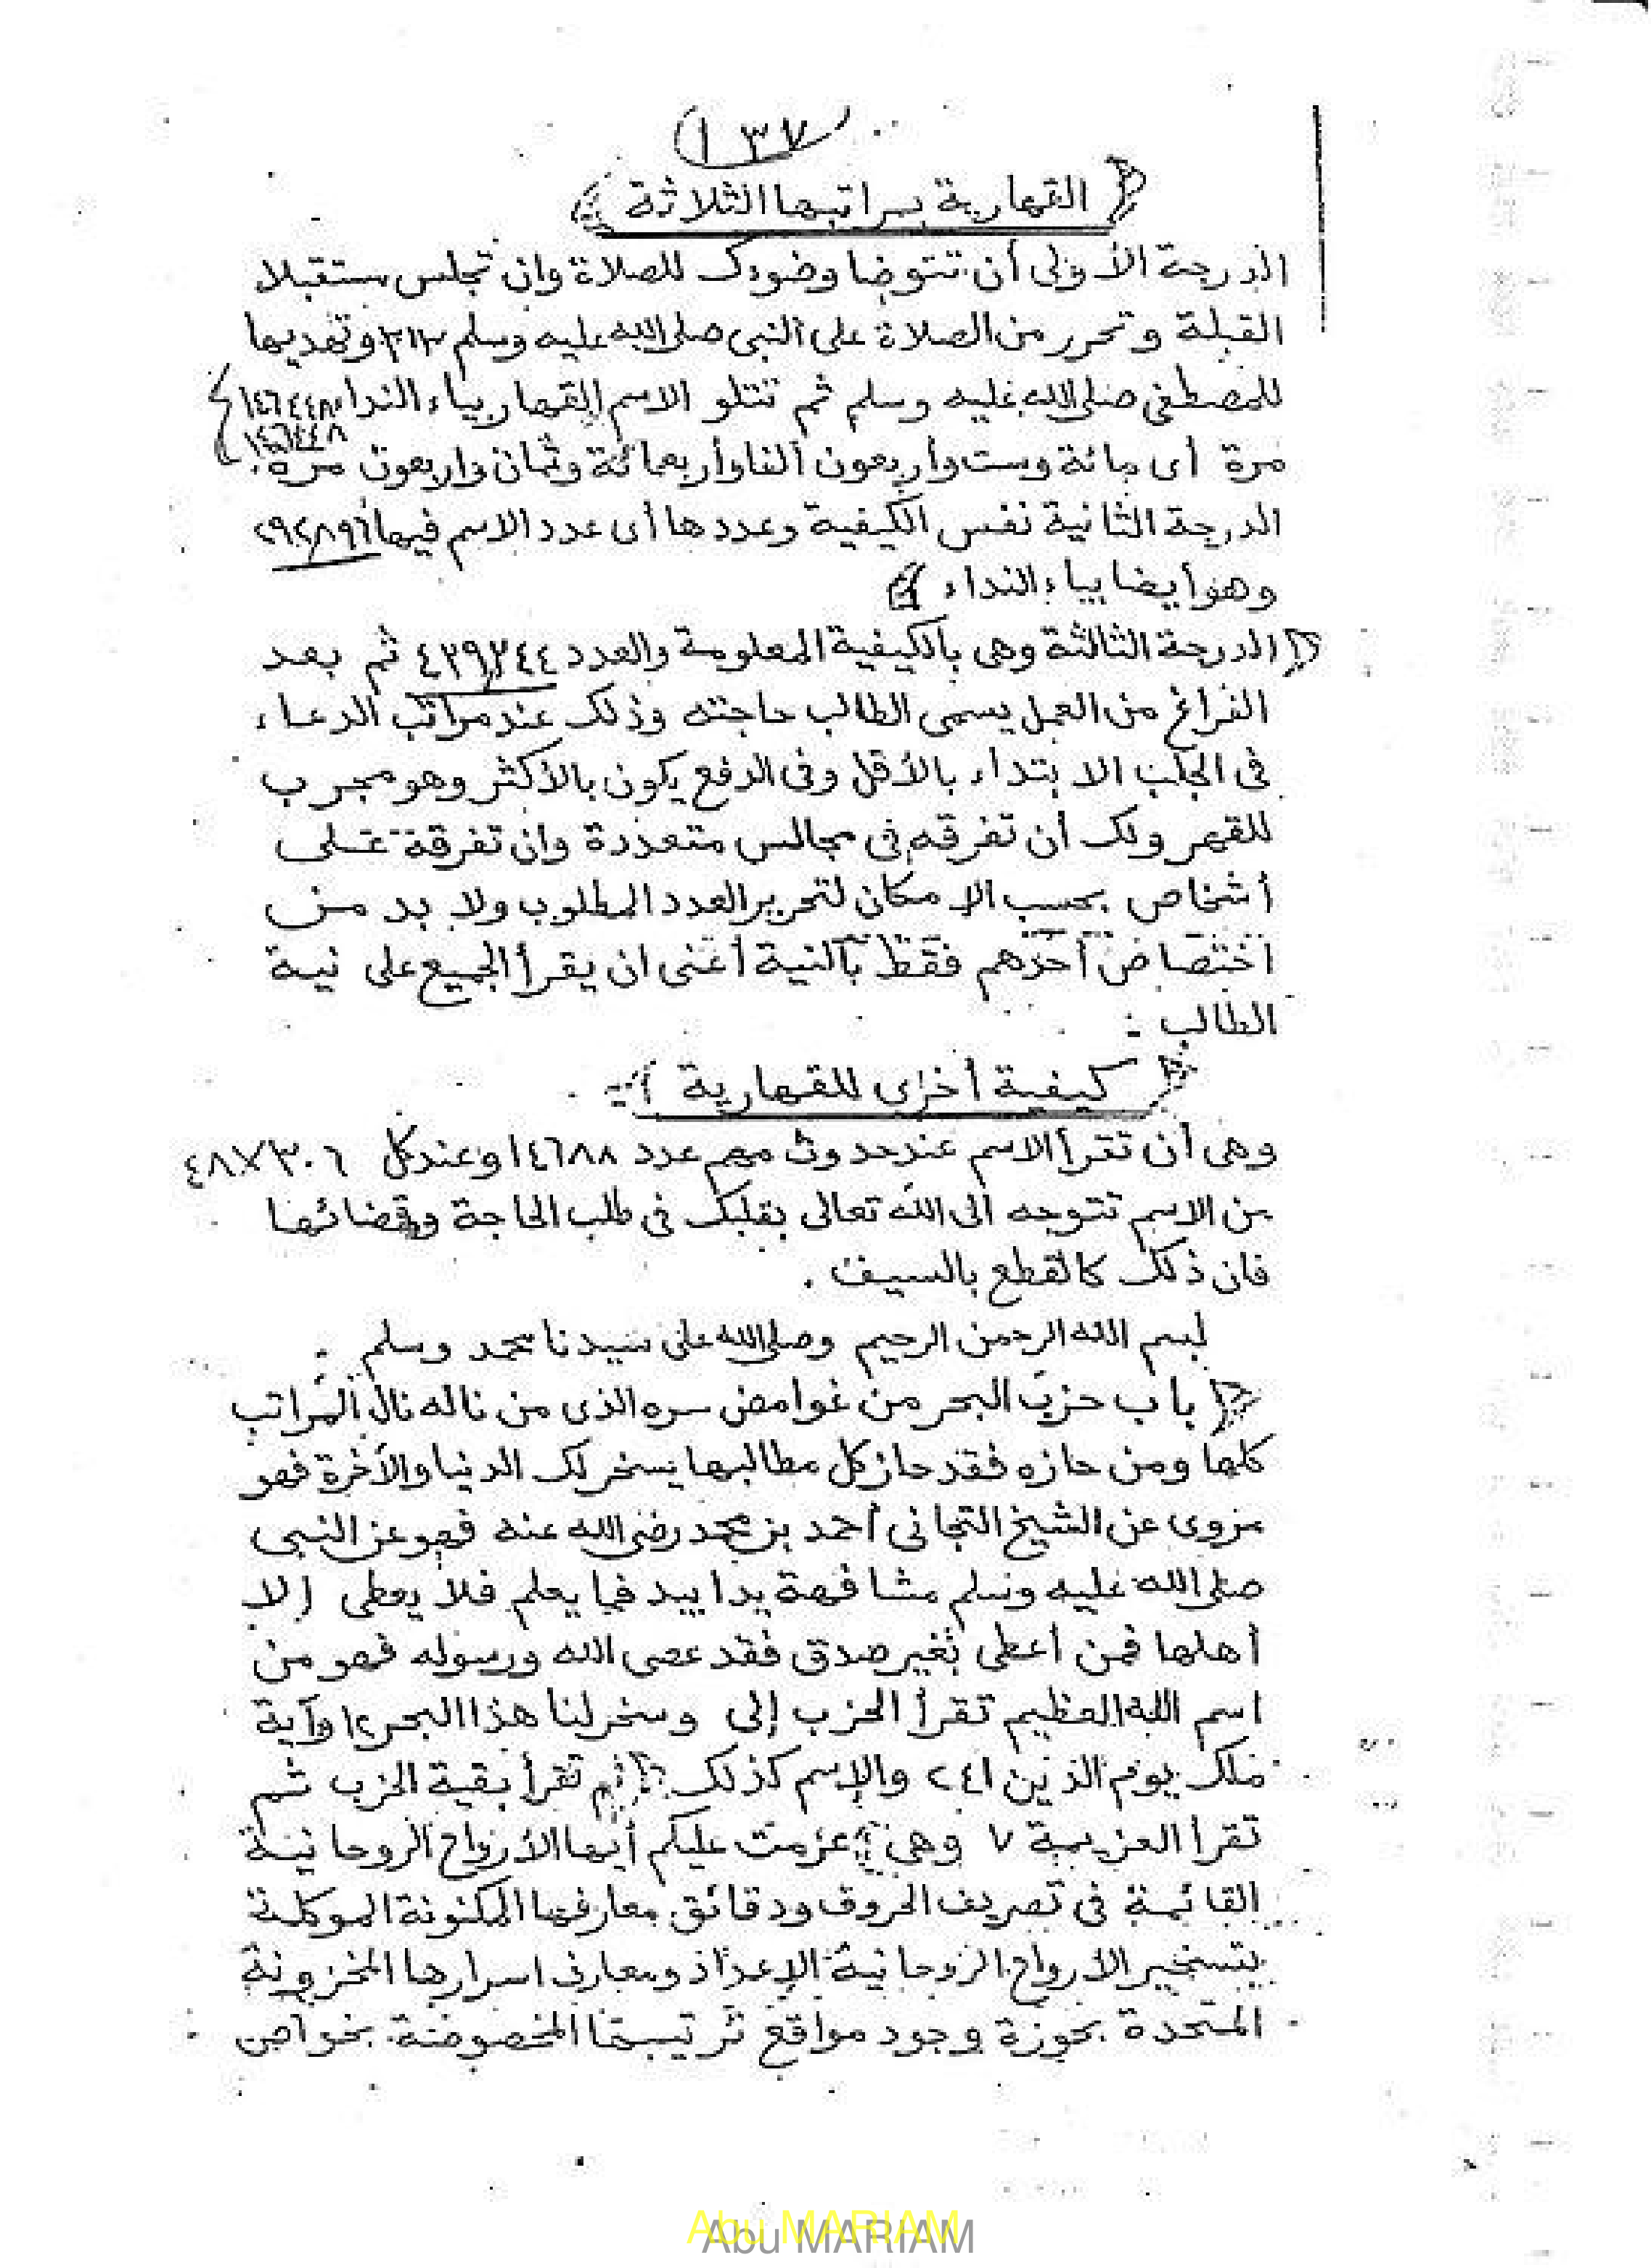 ١٣٧
القهارية بمراتبها الثلاثة
الدرجة الأولى أن تتوضا وضوءك للصلاة وان تجلس مستقبلا
القبلة وتحرر من الصلاة على النبى صلى الله عليه وسلم ٣١٣ وتهديها
للمصطفى صلى الله عليه وسلم ثم تتلو الاسم القهار بياء النداء ١٤٦٤٤٨
١٤٦٤٤٨
مرة أى مائة وست وأربعون ألفا وأربعمائة وثمان واربعون مرة .
الدرجة الثانية نفس الكيفية وعددها أى عدد الاسم فيها ٢٩٢٨٩٦
وهو أيضا بياء النداء
الدرجة الثالثة وهى بالكيفية المعلومة والعدد ٤٣٩٣٤٤ ثم بعد
الفراغ من العمل يسمى الطالب حاجته وذلك عند مراتب الدعاء
فى الجلب الابتداء بالأقل وفى الدفع يكون بالأكثر وهو مجرب
للقهر ولك أن تفرقه فى مجالس متعددة وان تفرقة على
أشخاص بحسب الإمكان لتحرير العدد المطلوب ولا بد من
اختصاص أحدهم فقط بالنية أعنى ان يقرأ الجميع على نية
الطالب .
كيفية أخرى للقهارية
وهى أن تقرأ الاسم عند حدوث مهم عدد ١٤٦٨٨ وعند كل ٣٠٦ × ٤٨
من الاسم تتوجه الى الله تعالى بقلبك فى طلب الحاجة وقضائها
فان ذلك كالقطع بالسيف .
بسم الله الرحمن الرحيم وصلى الله على سيدنا محمد وسلم .
باب حزب البحر من غوامض سره الذى من ناله نال المراتب
كلها ومن حازه فقد حاز كل مطالبها يسخر لك الدنيا والآخرة فهو
مروى عن الشيخ التجانى أحمد بن محمد رضى الله عنه فهو عن النبى
صلى الله عليه وسلم مشافهة يدا بيد فيما يعلم فلا يعطى إلا
أهلها فمن أعطى بغير صدق فقد عصى الله ورسوله فهو من
اسم الله العظيم تقرأ الحزب إلى وسخر لنا هذا البحر ١٢ وآية
ملك يوم الدين ٢٤١ والإسم كذلك ثم تقرأ بقية الحزب ثم
تقرأ العزيمة ٧ وهى عزمت عليكم أيها الأرواح الروحانية
القائمة فى تصريف الحروف ودقائق معارفها المكنونة الموكلة
بتسخير الأرواح الروحانية الإعداد ومعارف اسرارها المخزونة
المتحدة بحوزة وجود مواقع ترتيبها المخصوصة بخواص
Abu MARIAM